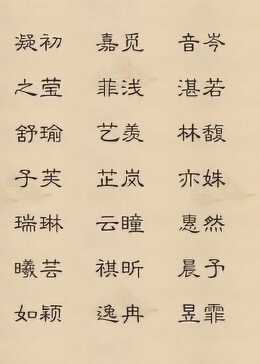 凝初 嘉觅 音岑
之莹 菲浅 湛若
舒瑜 艺羡 林馥
子芙 芷岚 亦姝
瑞琳 云瞳 惠然
曦芸 祺昕 晨予
如颖 逸冉 昱霏